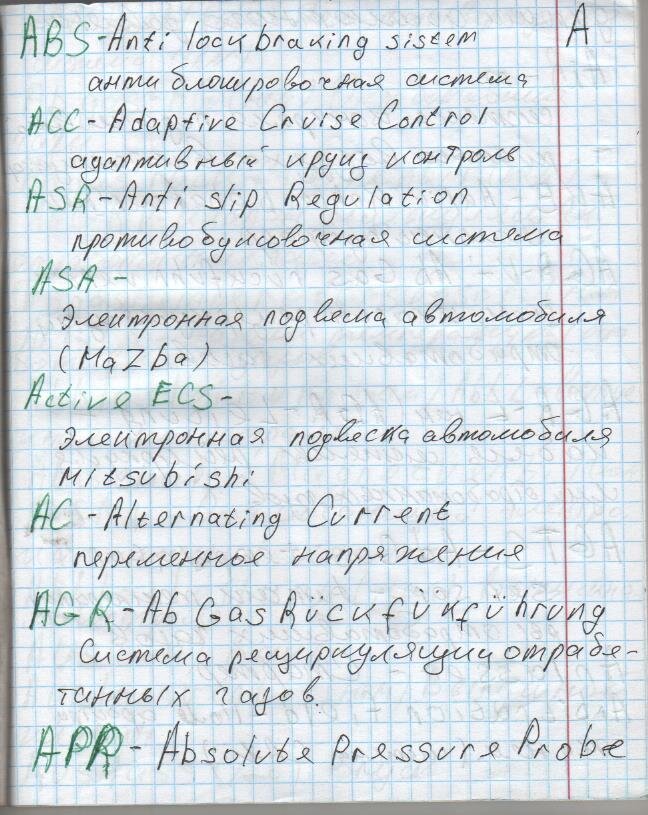 A
ABS-Anti lock braking sistem
анти блокировочная система
ACC-Adaptive Cruise Control
адаптивный круиз контроль
ASR-Anti slip Regulation
противобуксовочная система
ASA-
Электронная подвеска автомобиля
(MaZba)
Active ECS-
Электронная подвеска автомобиля
Mitsubishi
AC-Alternating Current
переменное напряжение
AGR-Ab Gas Rückfükführung
Система рециркуляции отрабо-
танных газов.
APR-Absolute Pressure Probe